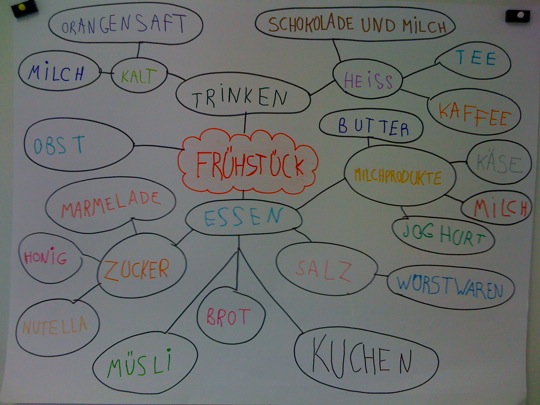 ORANGENSAFT
SCHOKOLADE UND MILCH
MILCH
KALT
HEISS
TEE
TRINKEN
KAFFEE
OBST
FRÜHSTÜCK
BUTTER
MILCHPRODUKTE
KÄSE
MILCH
JOGHURT
MARMELADE
ESSEN
HONIG
ZUCKER
SALZ
WÜRSTWAREN
NUTELLA
BROT
MÜSLI
KUCHEN